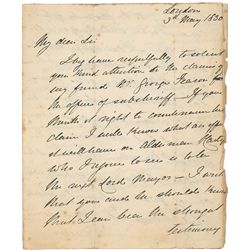 London
3rd May 1830
My dear Sir
I beg leave respectfully to solicit
your kind attention to the claims of
my friend Mr. George Pearson for
the office of undersheriff - If you
think it right to countenance his
claim I well know what an effect
it will have on Alderman
who I suppose to be
the next Lord Mayor - I wish
that you and he should know
that I can bear the strongest
testimony